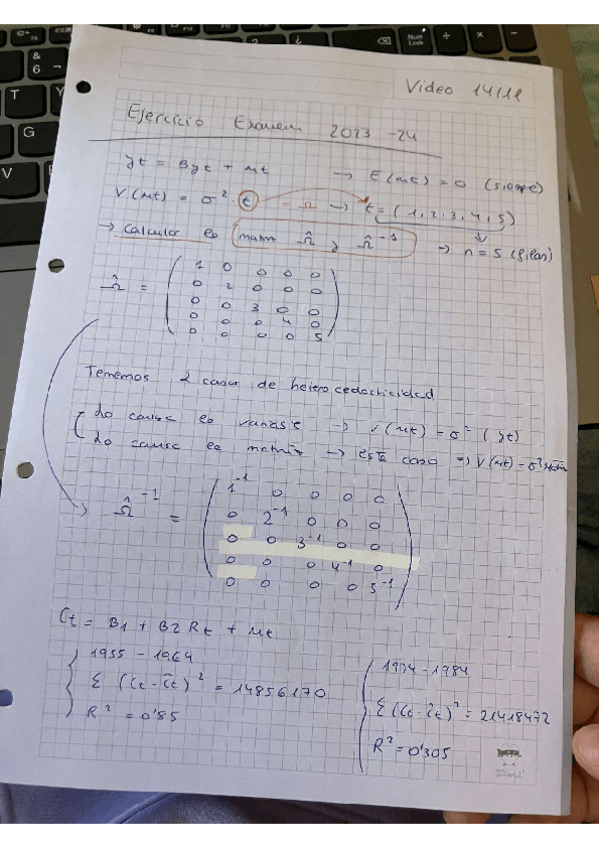 Video 14/11
Ejercicio Examen 2023-24
yt = Byt + ut → E(ut) = 0 (siempre)
V(ut) = σ² · t = Ω → t = (1, 2, 3, 4, 5)
→ calcular la matriz Ω̂ y Ω̂⁻¹ → n = 5 (filas)
Ω̂ =
1 0 0 0 0
0 2 0 0 0
0 0 3 0 0
0 0 0 4 0
0 0 0 0 5
Tenemos 2 casos de heterocedasticidad
la causa la variable → V(ut) = σ² (yt)
la causa la matriz → este caso → V(ut) = σ²
Ω̂⁻¹ =
1⁻¹ 0 0 0 0
0 2⁻¹ 0 0 0
0 0 3⁻¹ 0 0
0 0 0 4⁻¹ 0
0 0 0 0 5⁻¹
Ct = B1 + B2 Rt + ut
1955 - 1964
Σ (Ct - Ĉt)² = 14856170
R² = 0'85
1974 - 1984
Σ (Ct - Ĉt)² = 21418472
R² = 0'305
&
6
T
Y
G
V
Num
Lock